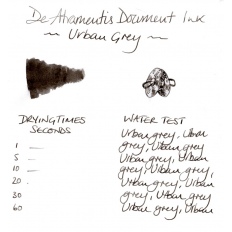 De Atramentis Document Ink
~ Urban Grey ~
DRYING TIMES
SECONDS
WATER TEST
1 —
5 —
10 —
20 .
30
60
Urban grey, Urban
grey, Urban grey,
Urban grey, Urban
grey, Urban grey,
Urban grey, Urban
grey, Urban grey
Urban grey, Urban